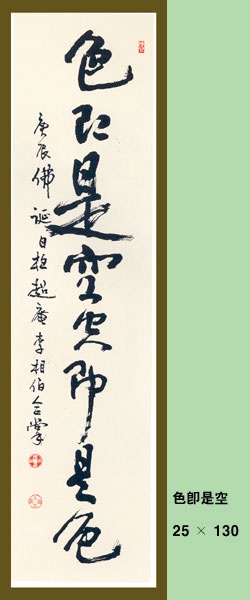 色即是空空即是色
庚辰佛誕日於超庵李相伯合掌
色卽是空
25 × 130